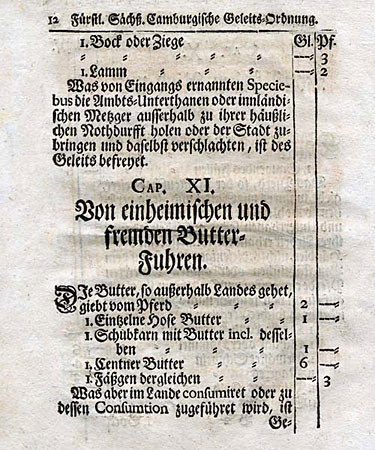 12 Fürstl. Sächß. Camburgische Geleits-Ordnung.
1. Bock oder Ziege Gl. Pf.
" " " " " " — 3
1. Lamm " " " " — 2
Was von Eingangs ernannten Specie-
bus die Ambts-Unterthanen oder innländi-
schen Metzger ausserhalb zu ihrer häußli-
chen Nothdurfft holen oder der Stadt zu-
bringen und daselbst verschlachten, ist des
Geleits befreyet.
CAP. XI.
Von einheimischen und
fremden Butter-
Fuhren.
DJe Butter, so außerhalb Landes gehet,
giebt vom Pferd " " " 2 — "
1. Eintzelne Hose Butter " " 1 — "
1. Schübkarn mit Butter incl. dessel-
ben " " " " 1 — "
1. Centner Butter " " " 6 — "
1. Fäßgen dergleichen " " — 3
Was aber im Lande consumiret oder zu
dessen Consumtion zugeführet wird, ist
Ge-